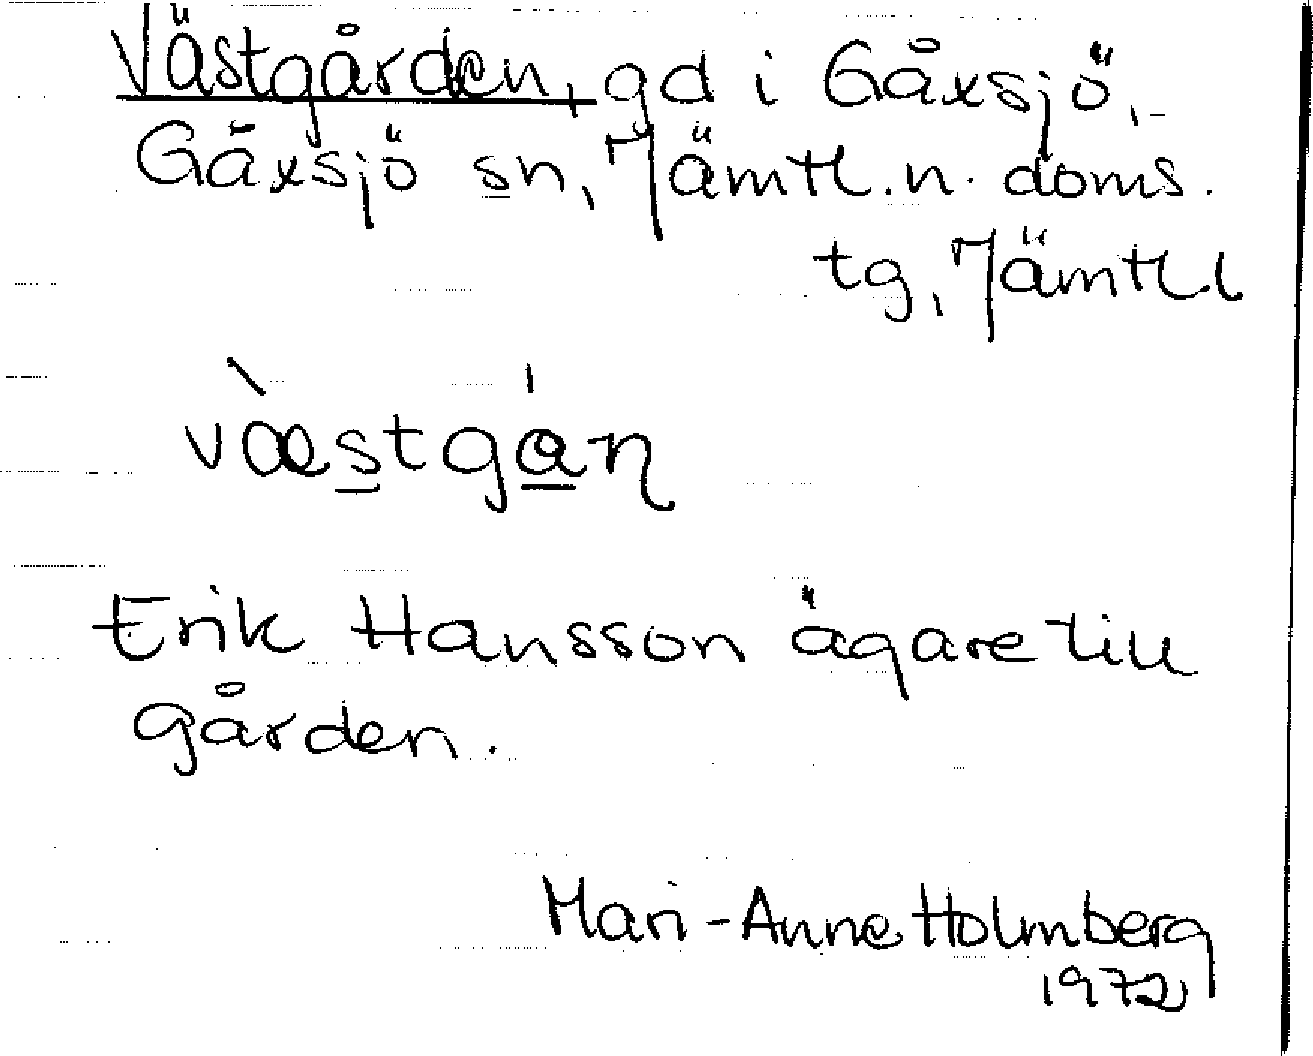 Västgården, gd i Gåxsjö,
Gåxsjö sn, Jämtl. n. doms.
tg, Jämtl. l
vǜstgáɳ
Erik Hansson ägare till
gården.
Mari-Anne Holmberg
1972